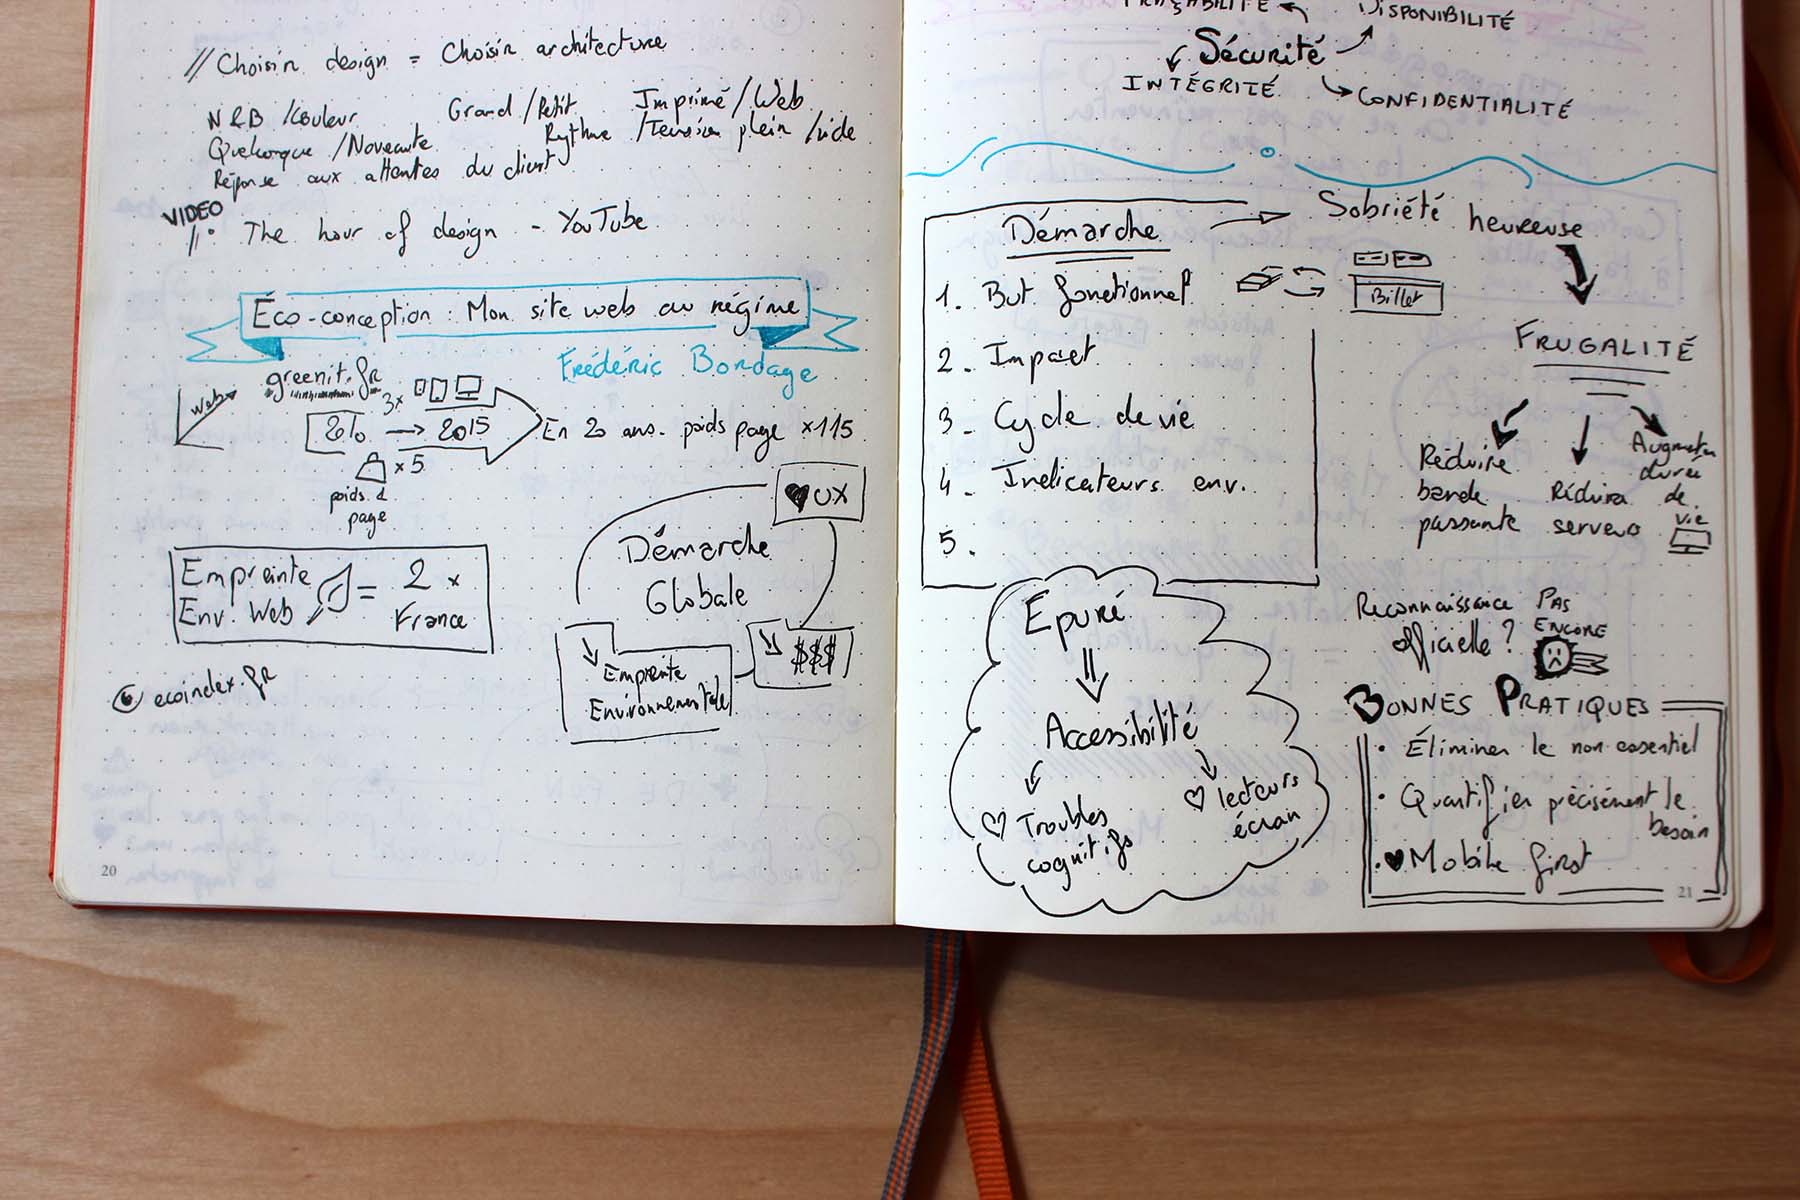 // Choisir design = Choisir architecture
N&B /Couleur Grand /Petit Imprimé /Web
Quelconque /Nouveauté Rythme /Tension plein /vide
Réponse aux attentes du client
VIDEO
// The hour of design - YouTube
Éco-conception : Mon site web au régime
Frédéric Bordage
greenit.fr
Web
3x
2010 → 2015
En 20 ans. poids page x115
x 5
poids d
page
♥ UX
Démarche
Globale
Empreinte
Env. Web
= 2 x
France
↘ Empreinte
Environnementale
↘ $$$
ecoindex.fr
20
TRAÇABILITÉ
DISPONIBILITÉ
Sécurité
INTÉGRITÉ
CONFIDENTIALITÉ
Démarche
Sobriété heureuse
1. But fonctionnel
Billet
2. Impact
3. Cycle de vie
4. Indicateurs env.
5.
FRUGALITÉ
Réduire
bande
passante
Réduire
serveurs
Augmenter
durée
de
vie
Epuré
Accessibilité
♡ Troubles
cognitifs
♡ lecteurs
écran
Reconnaissance
officielle ?
PAS
ENCORE
BONNES PRATIQUES
• Éliminer le non essentiel
• Quantifier précisément le
besoin
• ♥ Mobile first
21